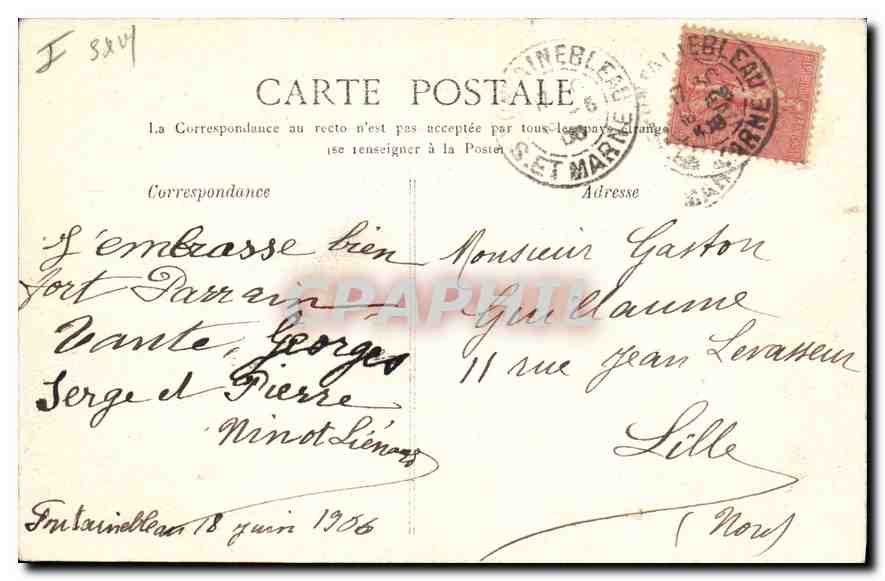 CARTE POSTALE
La Correspondance au recto n'est pas acceptée par tous les pays étrange
(se renseigner à la Poste)
Correspondance
J'embrasse bien
fort Parrain
Tante, Georges
Serge et Pierre
Ninot Liénard
Fontainebleau 18 juin 1906
Adresse
Monsieur Gaston
Guillaume
11 rue Jean Levasseur
Lille
(Nord)
AINEBLEAU
S. ET MARNE
EBLEAU
ARNE
CPAPHIL